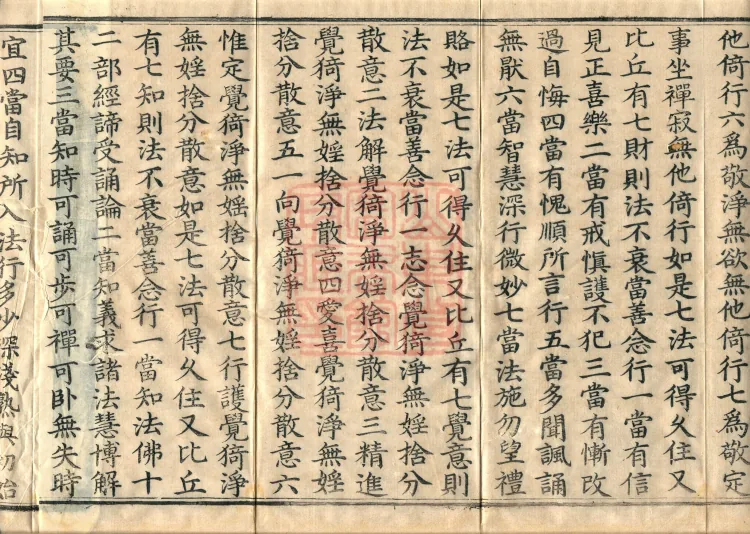 他倚行六為敬淨無欲無他倚行七為敬定
事坐禪寂無他倚行如是七法可得久住又
比丘有七財則法不衰當善念行一當有信
見正喜樂二當有戒慎護不犯三當有慚改
過自悔四當有愧順所言行五當多聞諷誦
無厭六當智慧深行微妙七當法施勿望禮
賂如是七法可得久住又比丘有七覺意則
法不衰當善念行一志念覺猗淨無婬捨分
散意二法解覺猗淨無婬捨分散意三精進
覺猗淨無婬捨分散意四愛喜覺猗淨無婬
捨分散意五一向覺猗淨無婬捨分散意六
惟定覺猗淨無婬捨分散意七行護覺猗淨
無婬捨分散意如是七法可得久住又比丘
有七知則法不衰當善念行一當知法佛十
二部經諦受誦論二當知義求諸法慧博解
其要三當知時可誦可步可禪可臥無失時
宜四當自知所入法行多少深淺熟與初始